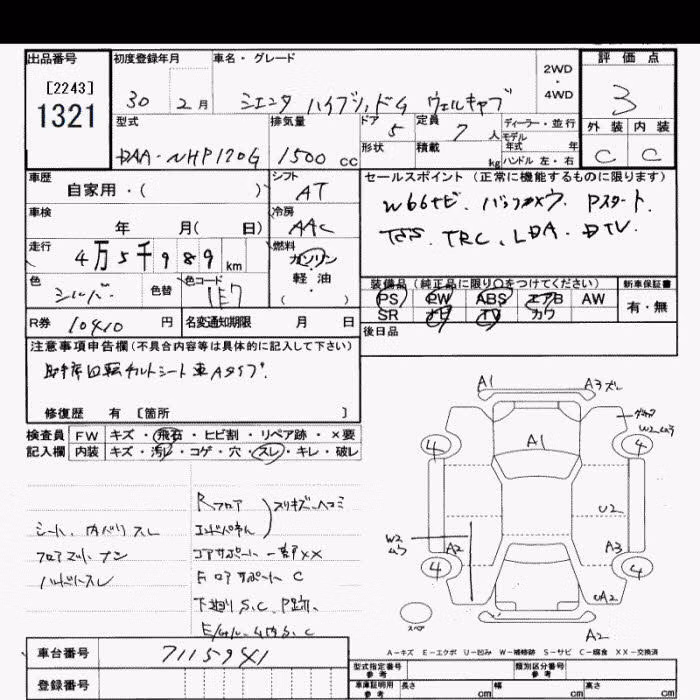 出品番号 初度登録年月 車名・グレード 2WD・4WD 評価点
[2243]
1321
30 2月 シエンタ ハイブリッドG ウェルキャブ 3
型式 排気量 ドア 定員 ディーラー・並行 外装 内装
DAA-NHP170G 1500cc 5 7人 モデル年式 年 C C
形状 積載 kg ハンドル 左・右
車歴 シフト セールスポイント (正常に機能するものに限ります)
自家用・( ) AT W66ナビ. バックカメラ. Pスタート.
車検 冷房 TSS. TRC. LDA. DTV.
年 月( 日) AAC
走行 燃料
4万5千989km ガソリン
軽油
( ・ )
色 色替 色コード 装備品 (純正品に限り○をつけてください) 新車保証書
シルバー 1E7 PS PW ABS エアB AW 有・無
SR ナビ TV カワ
R券 10410円 名変通知期限 月 日 後日品
注意事項申告欄(不具合内容等は具体的に記入して下さい)
助手席回転チルトシート車Aタイプ.
修復歴 有 [箇所 ]
検査員 FW キズ・飛石・ヒビ割・リペア跡・×要
記入欄 内装 キズ・汚レ・コゲ・穴・スレ・キレ・破レ
シート、内バリスレ
フロアマットナシ
ハンドルスレ
Rフロア
エンドパネル
スリキズ、ヘコミ
コアサポート一部XX
Fロアサポート C
下廻り S.C. P跡.
A1 A3
A1
W2ムラ
4 4
U2
W2ムラ
A2 A3
4 4
UA2
スペア
A2
A-キズ E-エクボ U-凹み W-補修跡 S-サビ C-腐食 XX-交換済
車台番号 7115941
登録番号
型式指定番号 参考 類別区分番号 参考
車庫証明用 参考 長さ cm 幅 cm 高さ cm